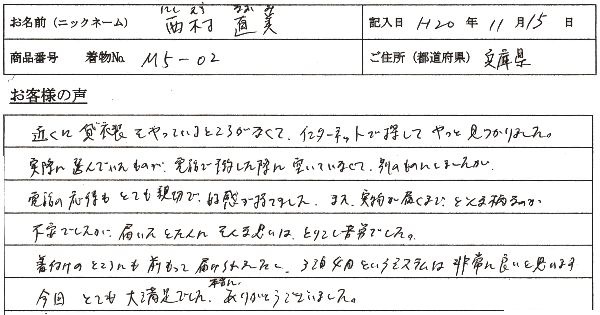 お名前(ニックネーム) 西村 直美 にしむら なおみ 記入日 H20 年 11 月 15 日
商品番号 着物No. M5-02 ご住所(都道府県) 兵庫県
お客様の声
近くに貸衣裳をやっているところがなくて、インターネットで探してやっと見つかりました。
実際に選んでいたものが、電話で予約した際に空いていなくて、別のものにしましたが、
電話の応待もとても親切で、好感が持てました。また、実物が届くまで、どんな柄なのか
不安でしたが、届いたとたんにそんな思いは、とりこし苦労でした。
着付けのところにも前もって届けられましたし、3泊4日というシステムは非常に良いと思います
今回とても大満足でした。本当にありがとうございました。